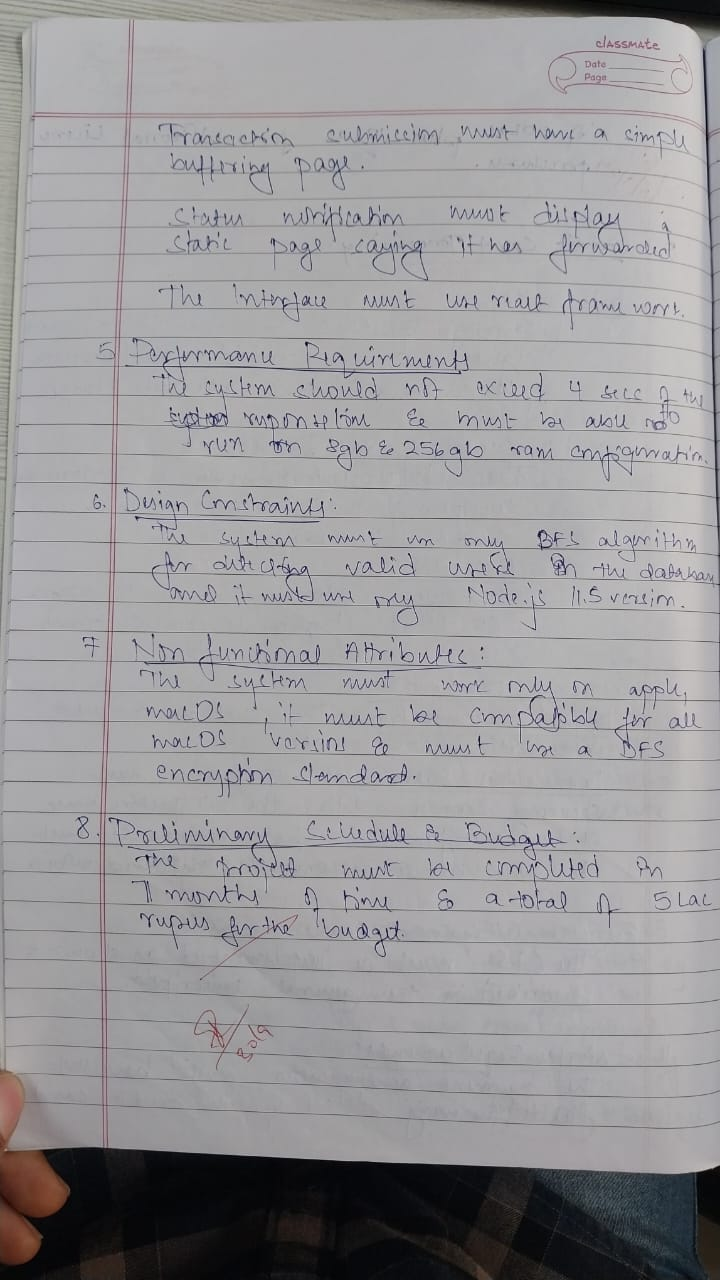 classmate
Date
Page
Transaction submission must have a simple
buffering page.
Status notification must display a
static page saying it has forwarded
The Interface must use react frame work.
5 Performance Requirments
The system should not exceed 4 secs of the
response time & must be able to
run on 8gb & 256gb ram configuration.
6. Design Constraints:
The system must use only BFS algorithm
for detecting valid users in the database
and it must use only Node.js 11.5 version.
7 Non functional Attributes:
The system must work only on apple,
macOS, it must be compatible for all
macOS versions & must use a DFS
encryption standard.
8. Preliminary Schedule & Budget:
The project must be completed in
7 months of time & a total of 5 Lac
rupees for the budget.